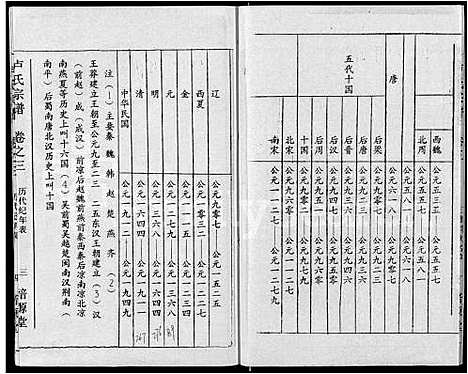 西魏 公元五三五 公元五五六
北周 公元五五七 公元五八一
公元五八一 公元六一八
唐 公元六一八 公元九〇七
五代十国
后梁 公元九〇七 公元九二三
后唐 公元九二三 公元九三六
后晋 公元九三六 公元九四六
后汉 公元九四七 公元九五〇
后周 公元九五一 公元九六〇
十国
北宋 公元九六〇 公元一一二七
南宋 公元一一二七 公元一二七九
辽 公元九〇七 公元一一二五
西夏 公元一〇三二 公元一二二七
金 公元一一一五 公元一二三四
元 公元一二七九 公元一三六八
明 公元一三六八 公元一六四四
清 公元一六四四 公元一九一一
中华民国 公元一九一二 公元一九四九
注（1）主要秦魏韩赵楚燕齐（2）
王莽建立王朝至公元九至二三 二五东汉王朝建立（3）汉
（前赵）成（成汉）前凉后赵魏前燕前秦西秦后凉南凉北凉
南燕夏等历史上叫十六国（4）吴前蜀吴越楚闽南汉荆南（
南平）后蜀南唐北汉历史上叫十国
卢氏宗谱 卷之三 历代纪年表 三 培源堂